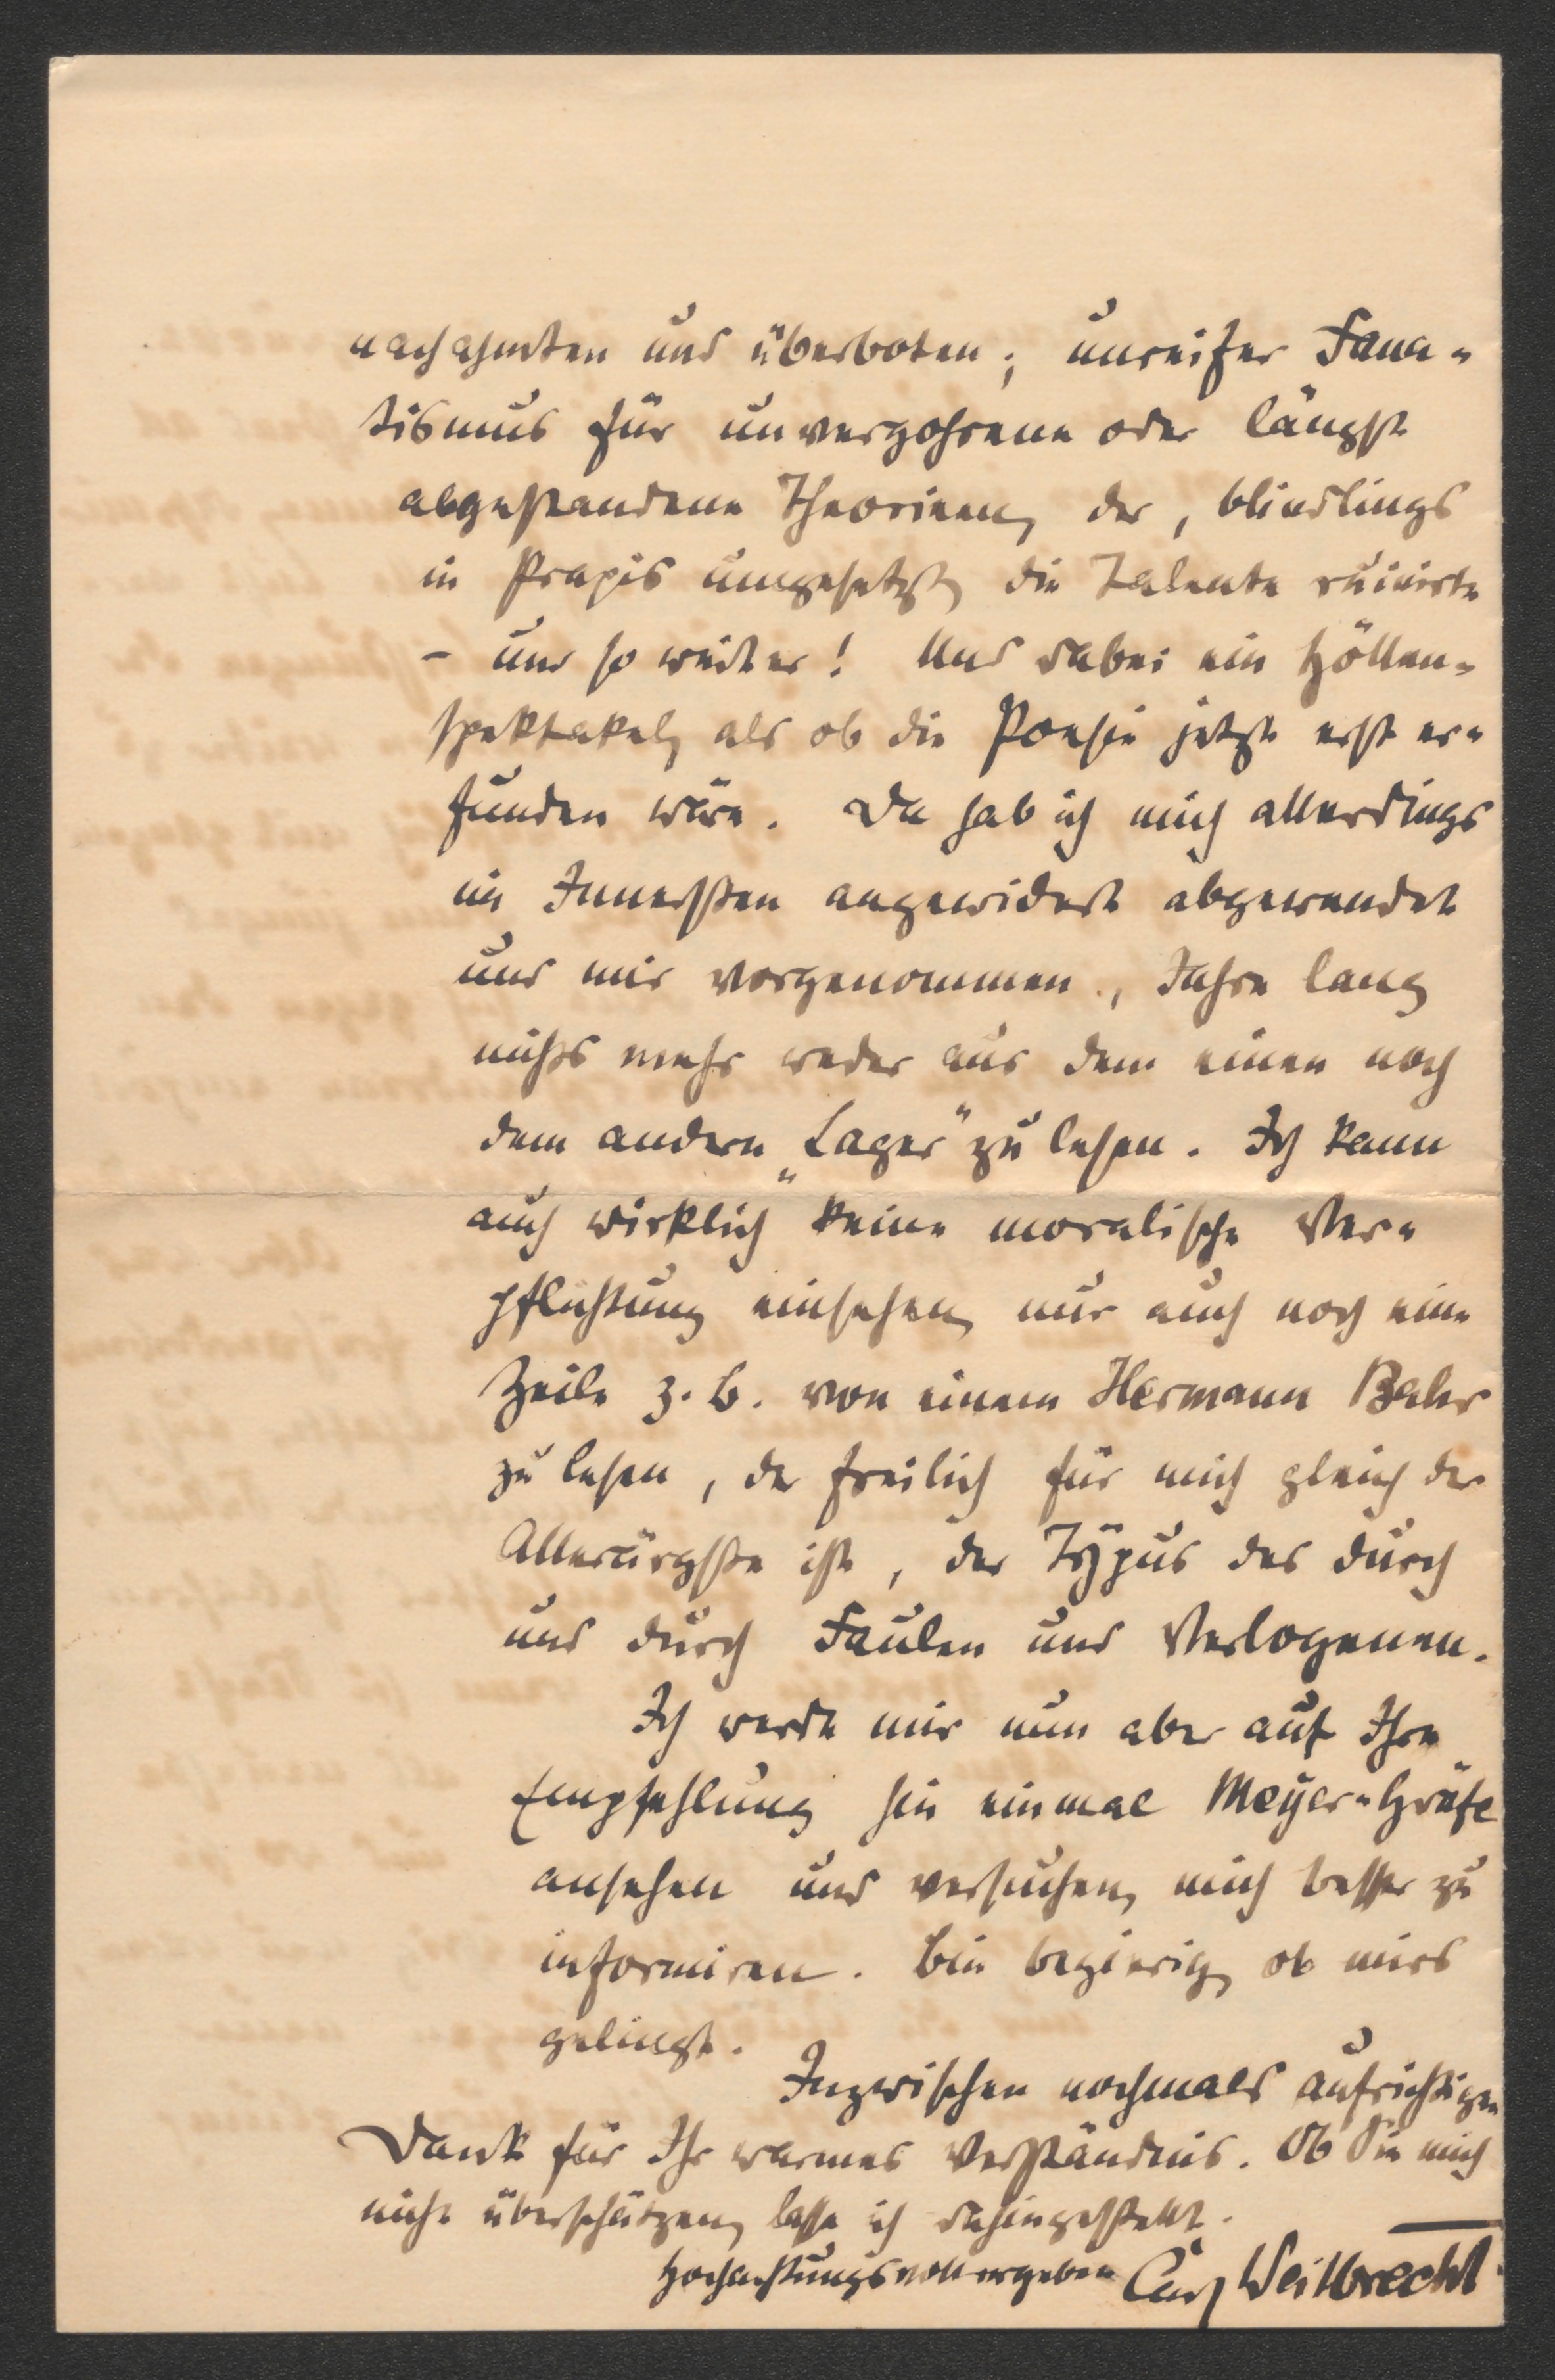 nachahmten und überboten; unreifer Fana-
tismus für unvergohrene oder längst
abgestandene Theorieen, der, blindlings
in Praxis umgesetzt, die Talente ruinirte
– und so weiter! Und dabei ein Höllen-
spektakel, als ob die Poesie jetzt erst er-
funden wäre. Da hab ich mich allerdings
im Innersten angewidert abgewendet
und mir vorgenommen, Jahre lang
nichts mehr weder aus dem einen noch
dem andern „Lager" zu lesen. Ich kann
auch wirklich keine moralische Ver-
pflichtung einsehen, nur auch noch eine
Zeile z. B. von einem Hermann Bahr
zu lesen, der freilich für mich gleich der
Allerärgste ist, der Typus des durch
und durch Faulen und Verlogenen.
Ich werde mir nun aber auf Ihre
Empfehlung hin einmal Meyer-Gräfe
ansehen und versuchen, mich besser zu
informiren. Bin begierig, ob mirs
gelingt.
Inzwischen nochmals aufrichtigen
Dank für Ihr warmes Verständnis. Ob Sie mich
nicht überschätzen, lasse ich dahingestellt.
Hochachtungsvoll ergeben Carl Weitbrecht